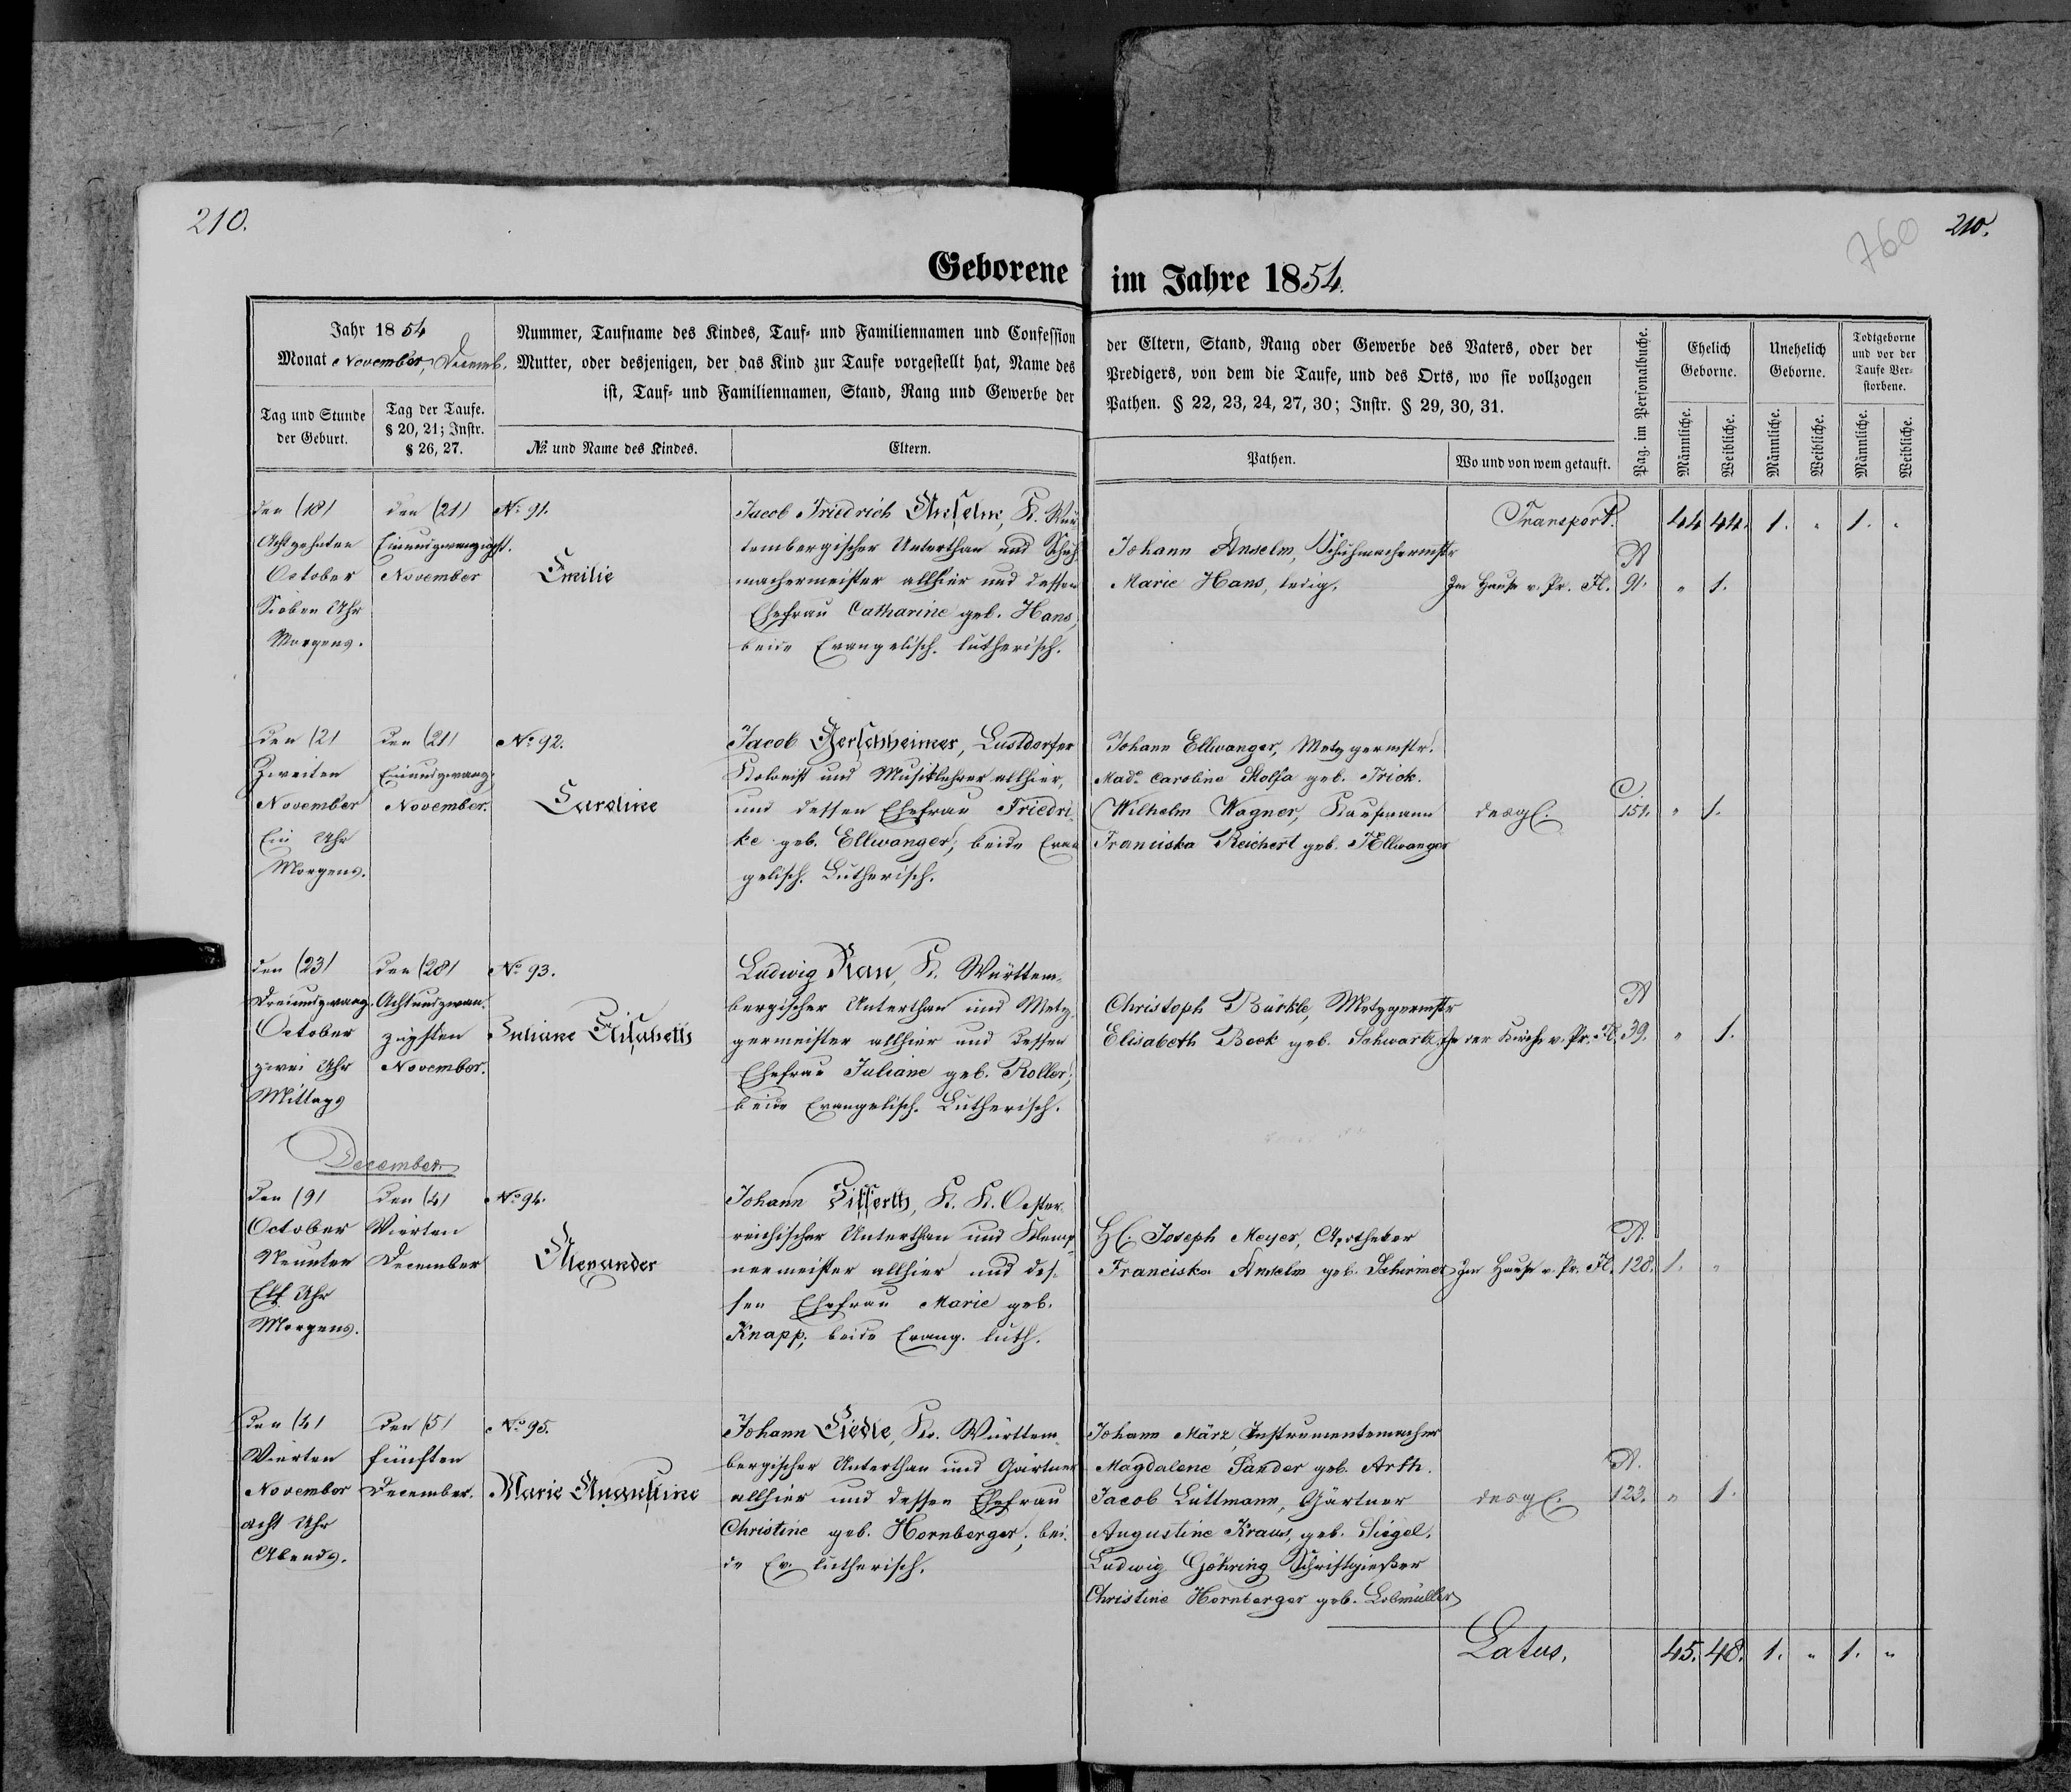 210.
760
210.
Geborene im Jahre 1854.
Jahr 1854
Monat November, Decemb.
Nummer, Taufname des Kindes, Tauf- und Familiennamen und Confession
Mutter, oder desjenigen, der das Kind zur Taufe vorgestellt hat, Name des
ist, Tauf- und Familiennamen, Stand, Rang und Gewerbe der
der Eltern, Stand, Rang oder Gewerbe des Vaters, oder der
Predigers, von dem die Taufe, und des Orts, wo sie vollzogen
Pathen. § 22, 23, 24, 27, 30; Instr. § 29, 30, 31.
Tag und Stunde
der Geburt.
Tag der Taufe.
§ 20, 21; Instr.
§ 26, 27.
№ und Name des Kindes.
Eltern.
Pathen.
Wo und von wem getauft.
Pag. im Personalbuche.
Ehelich
Geborne.
Unehelich
Geborne.
Todtgeborne
und vor der
Taufe Ver-
storbene.
Männliche.
Weibliche.
Männliche.
Weibliche.
Männliche.
Weibliche.
Transport. 44 44. 1. " 1. "
den (18)
Achtzehnten
October
Sieben Uhr
Morgens.
den (21)
Einundzwanzigst.
November
No 91.
Emilie
Jacob Friedrich Anselm, K. Wür
tembergischer Unterthan und Schuh
machermeister allhier und dessen
Ehefrau Catharine geb. Hans,
beide Evangelisch. lutherisch.
Johann Anselm, Schuhmachermstr
Marie Hans, ledig.
Im Hause v. Pr. Fl.
A
91. " 1.
den (2)
Zweiten
November
Ein Uhr
Morgens.
den (21)
Einundzwanz.
November.
No 92.
Caroline
Jacob Gerschheimer, Lustdorfer
Kolonist und Musiklehrer allhier,
und dessen Ehefrau Friedri-
ke geb. Ellwanger; beide Evan
gelisch. Lutherisch.
Johann Ellwanger, Metzgermstr.
Made Caroline Stolfa geb. Frick.
Wilhelm Wagner, Kaufmann
Franciska Reichert geb. Ellwanger
desgl.
C.
151. " 1.
den (23)
Dreiundzwanz.
October
zwei Uhr
Mittags
den (28)
Achtundzwan-
zigsten
November.
No 93.
Juliane Elisabeth
Ludwig Rau, K. Württem-
bergischer Unterthan und Metz-
germeister allhier und dessen
Ehefrau Juliane geb. Roller;
beide Evangelisch. Lutherisch.
Christoph Bürkle, Metzgermstr
Elisabeth Beck geb. Schwartz
In der Kirche v. Pr. Fl.
A
39. " 1.
December
den (9)
October
Neunten
Elf Uhr
Morgens.
den (4)
Vierten
December
No 94.
Alexander
Johann Zifferth, K. K. Oester-
reichischer Unterthan und Klemp-
nermeister allhier und des-
sen Ehefrau Marie geb.
Knapp; beide Evang. luth.
H. Joseph Meyer, Apotheker
Franciska Anselm geb. Schirmer
Im Hause v. Pr. Fl.
A.
128. 1. "
den (4)
Vierten
November
acht Uhr
Abends.
den (5)
fünften
December.
No 95.
Marie Augustine
Johann Liedle, K. Württem-
bergischer Unterthan und Gärtner
allhier und dessen Ehefrau
Christine geb. Hornberger; bei-
de Ev. lutherisch.
Johann März, Instrumentemacher
Magdalene Sander geb. Arth.
Jacob Lüttmann, Gärtner
Augustine Kraus, geb. Siegel.
Ludwig Göhring Schriftgießer
Christine Hornberger geb. Lobmüller
desgl.
A.
123. " 1.
Latus. 45. 48. 1. " 1. "